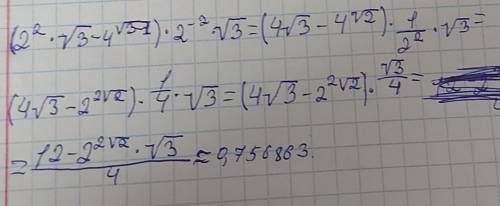 (2² · √3 - 4^√(3-1)) · 2⁻² √3 = (4√3 - 4^√2) · 1/2² · √3 =
(4√3 - 2^(2√2)) · 1/4 · √3 = (4√3 - 2^(2√2)) · √3/4 =
= (12 - 2^(2√2) · √3)/4 ≈ 0,756863.